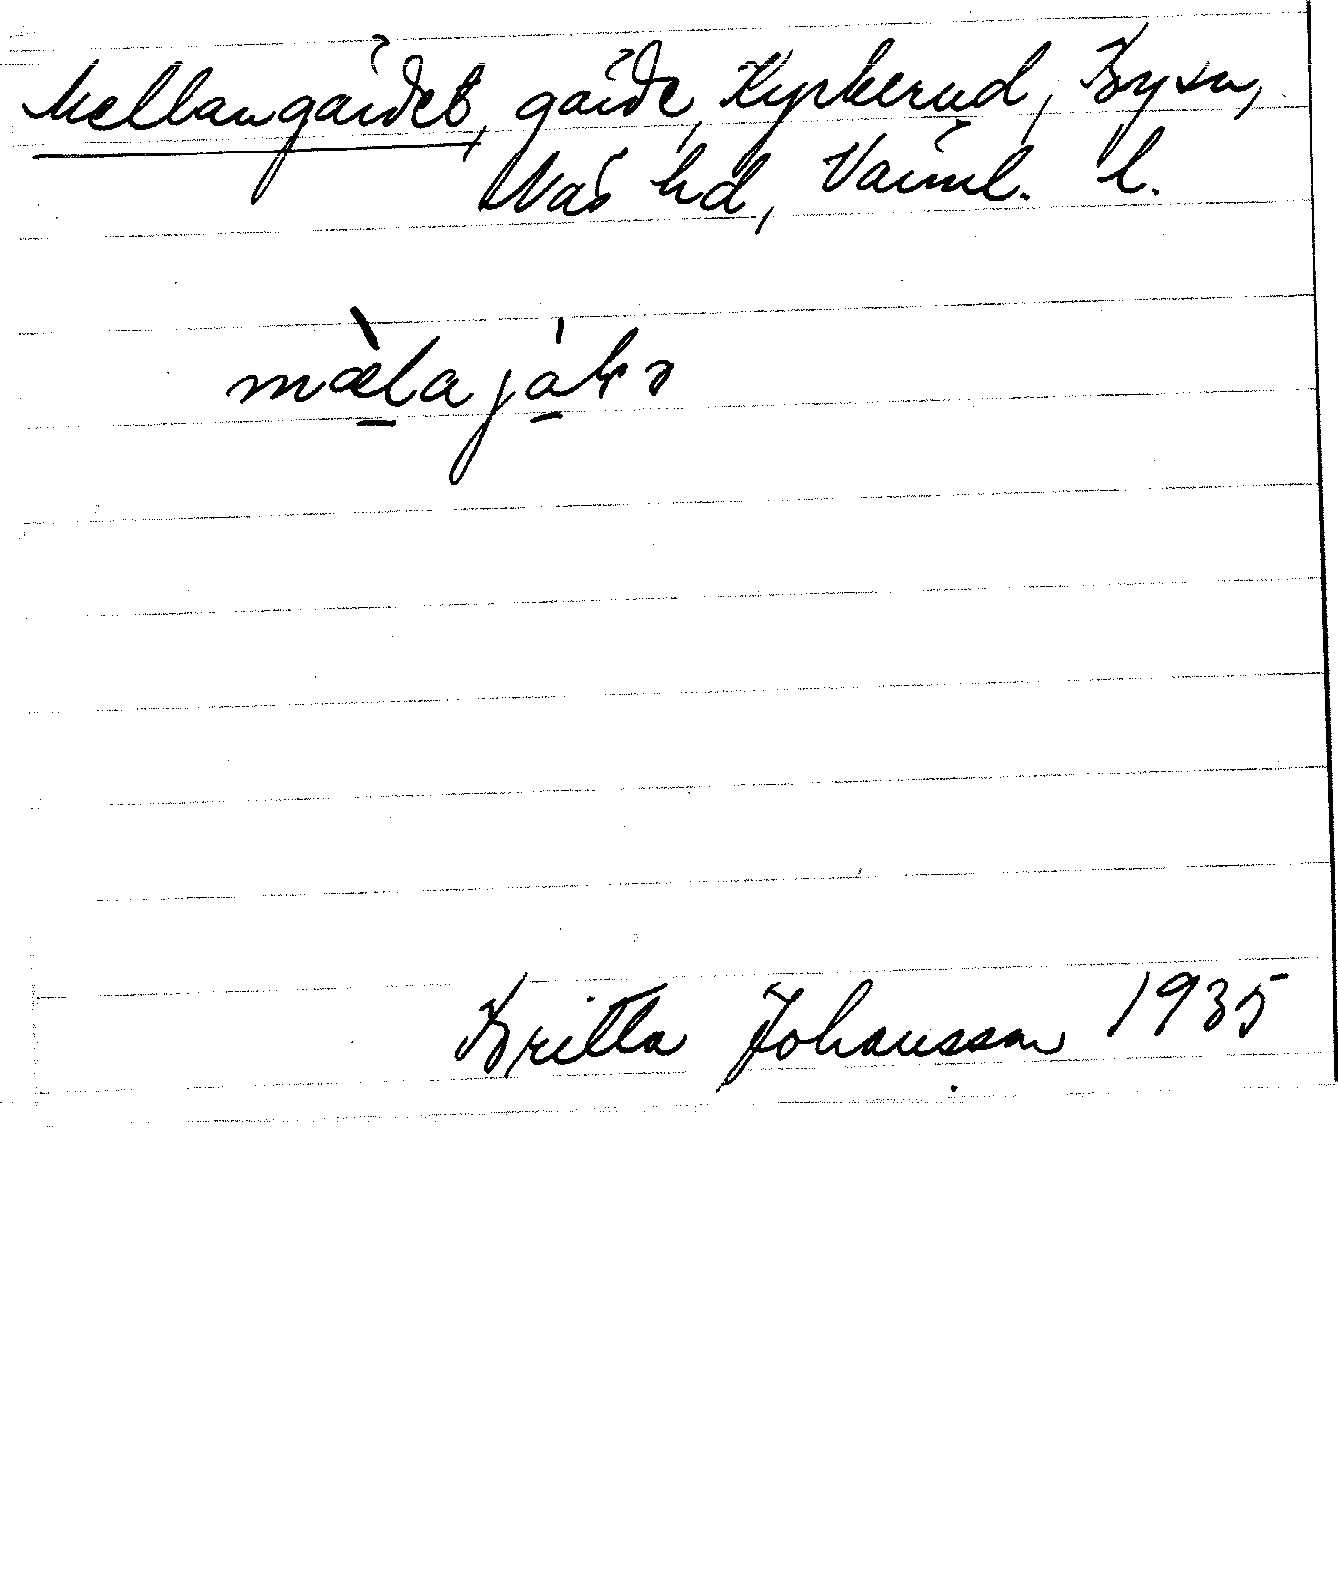 Mellangärdet, gärde, Kyrkerud, By sn,
Näs hd, Värml. l.
mæ̀lajáḷə
Britta Johansson 1935